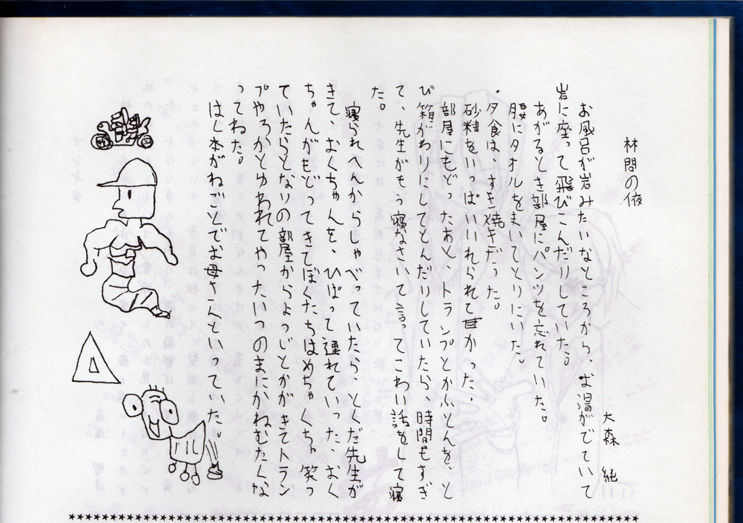 林間の夜
大森 純
お風呂が岩みたいなところから、お湯がでていて
岩に座って飛びこんだりしていた。
あがるとき部屋にパンツを忘れていた。
腰にタオルをまいてとりにいた。
・夕食は、すき焼きだった。
砂糖をいっぱいいれられて甘かった、
部屋にもどったあと、トランプとかふとんを、と
び箱がわりにしてとんだりしていたら、時間もすぎ
て、先生がもう寝なさいて言ってこわい話をして寝
た。
寝られへんからしゃべっていたら、とくだ先生が
きて、おくちゃんを、ひぱって連れていった、おく
ちゃんがもどってきてぼくたちはめちゃくちゃ笑っ
ていたらとなりの部屋からょっじとかがきてトラン
プやろかとゆわれてやったいつのまにかねむたくな
ってねた。
はし本がねごとでお母さんといっていた。